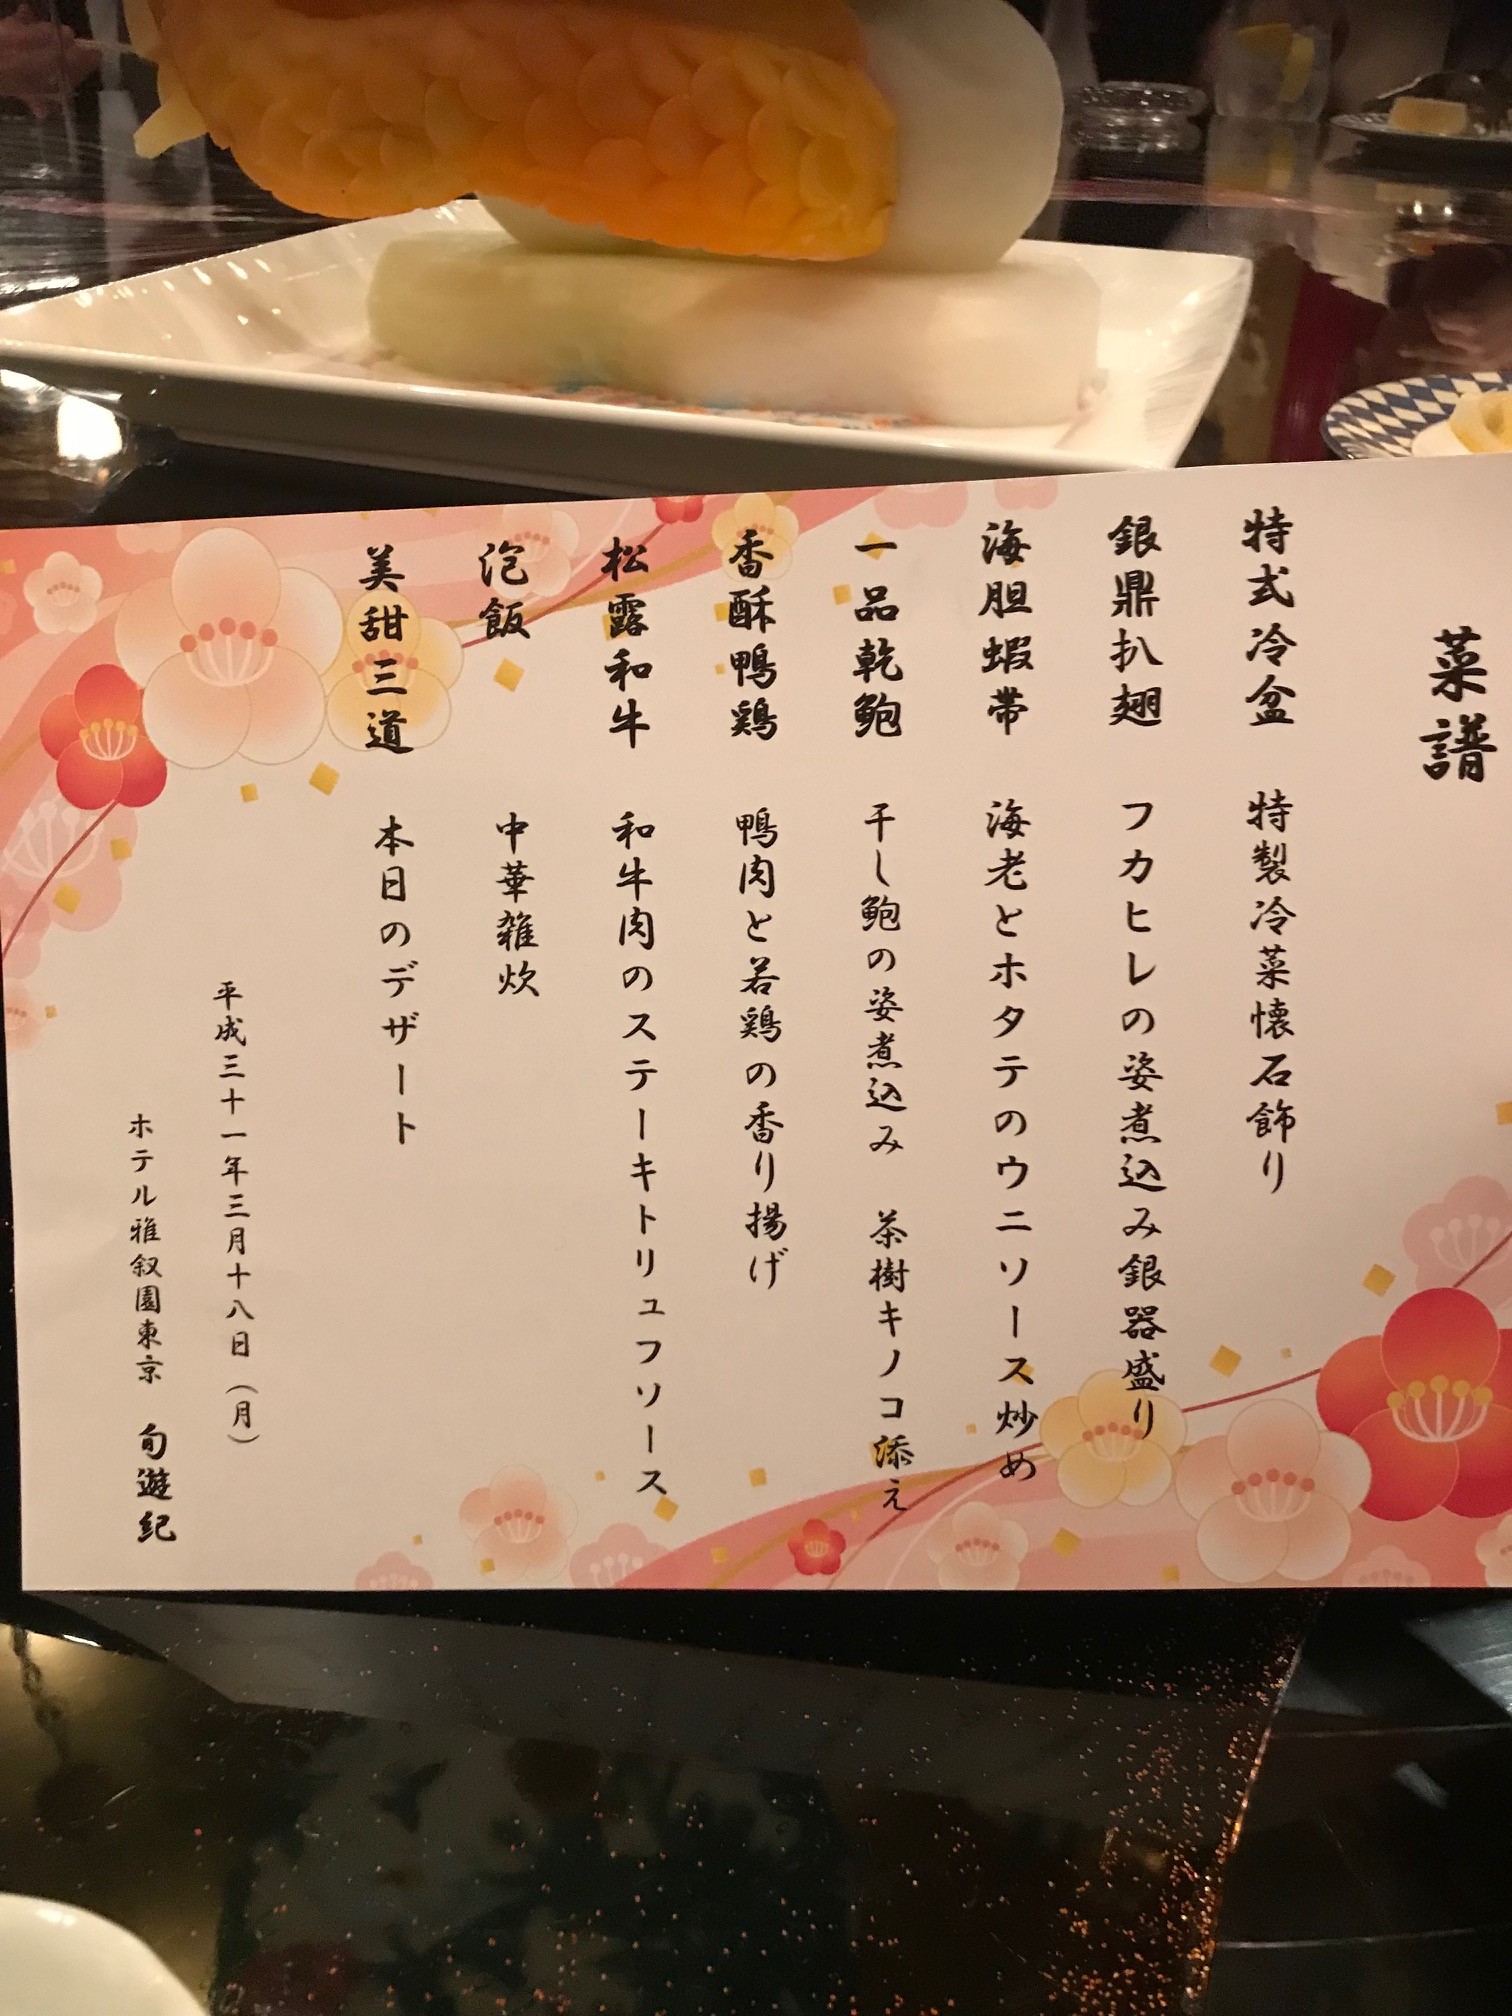 菜譜
特式冷盆　特製冷菜懐石飾り
銀鼎扒翅　フカヒレの姿煮込み銀器盛り
海胆蝦帯　海老とホタテのウニソース炒め
一品乾鮑　干し鮑の姿煮込み　茶樹キノコ添え
香酥鴨鶏　鴨肉と若鶏の香り揚げ
松露和牛　和牛肉のステーキトリュフソース
泡飯　中華雑炊
美甜三道　本日のデザート
平成三十一年三月十八日（月）
ホテル雅叙園東京　旬遊紀